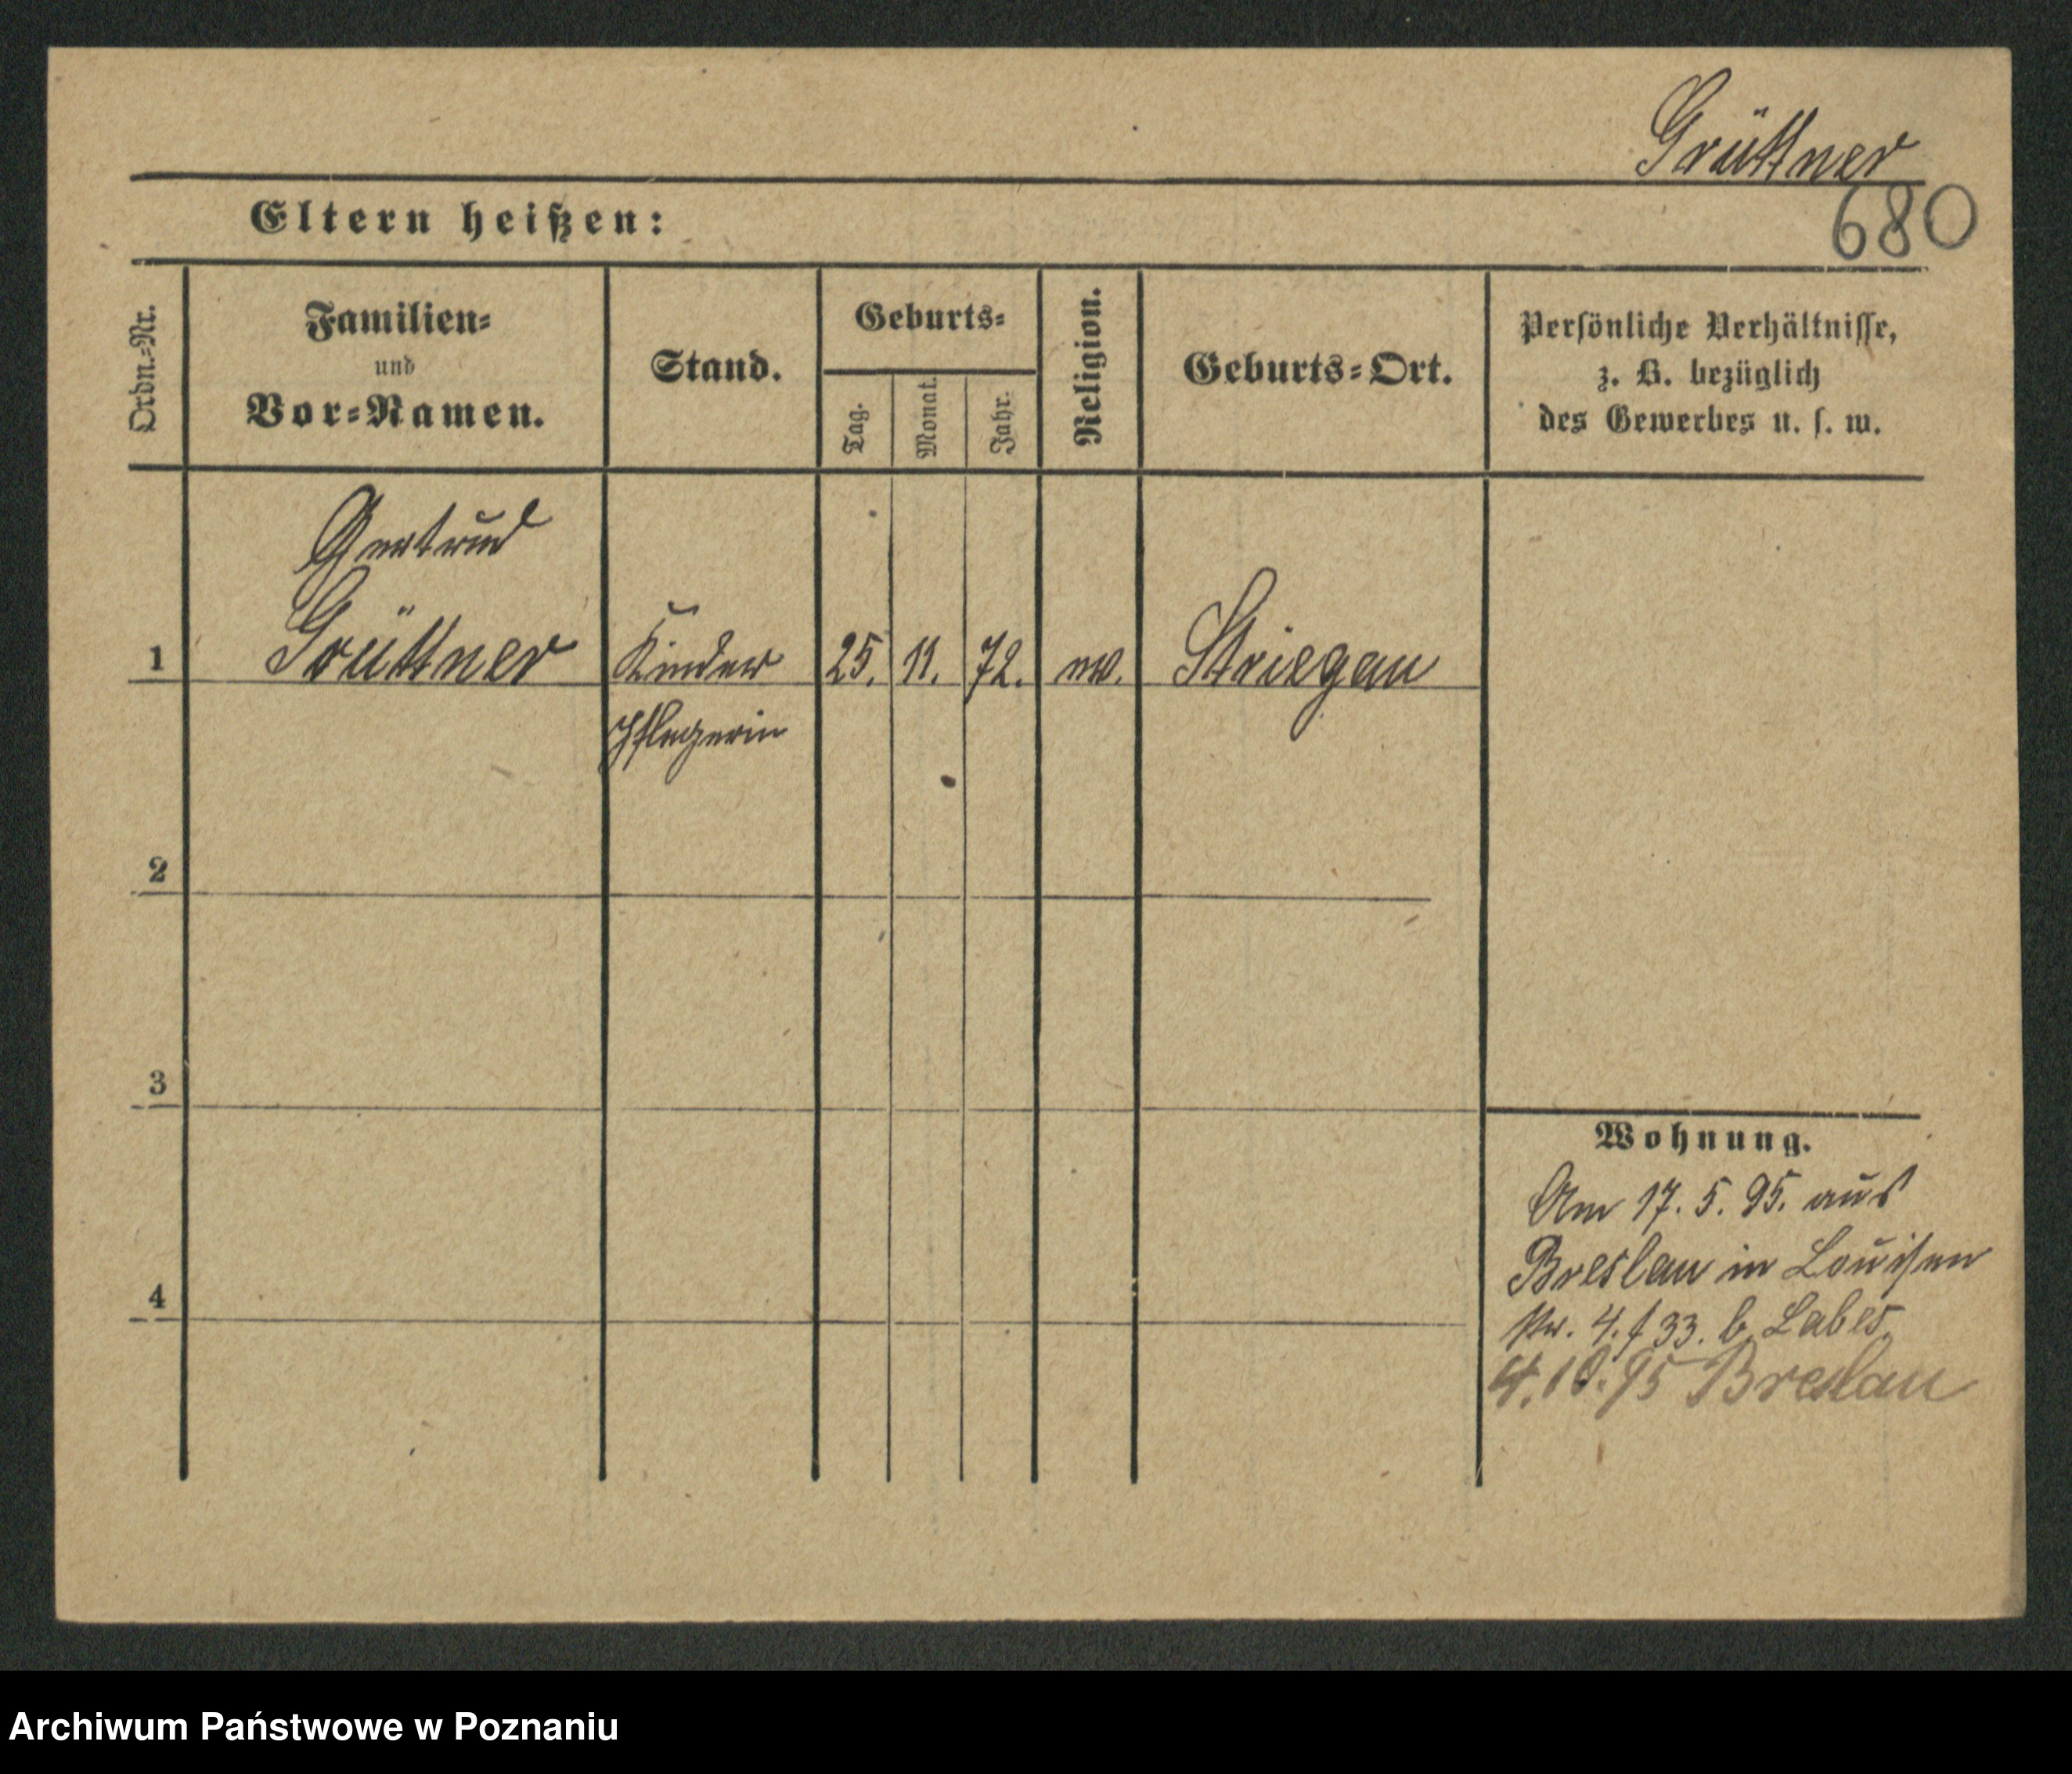 Grüttner
Eltern heißen:
680
Ordn.-Nr.
Familien-
und
Vor-Namen.
Stand.
Geburts-
Tag.
Monat.
Jahr.
Religion.
Geburts-Ort.
Persönliche Verhältnisse,
z. B. bezüglich
des Gewerbes u. s. w.
Gertrud
1 Grüttner Kinder 25. 11. 72. ev. Striegau
Pflegerin
2
3
4
Wohnung.
Am 17. 5. 95. aus
Breslau in Louisen
Str. 4. f 33. b. Labes
4.10.95 Breslau
Archiwum Państwowe w Poznaniu